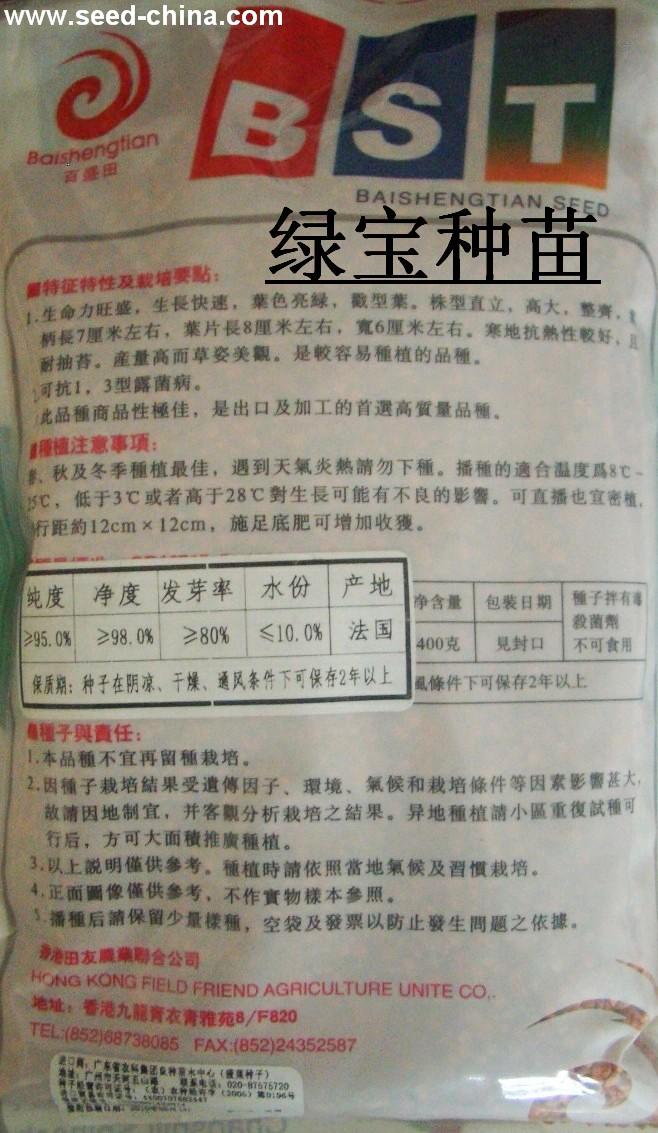 www.seed-china.com
BST
Baishengtian
百盛田
BAISHENGTIAN SEED
绿宝种苗
特征特性及栽培要點:
1.生命力旺盛，生長快速，葉色亮緑，戳型葉。株型直立，高大，整齊，
柄長7厘米左右，葉片長8厘米左右，寬6厘米左右。寒地抗熱性較好，且
耐抽苔。産量高而草姿美觀。是較容易種植的品種。
可抗1，3型露菌病。
此品種商品性極佳，是出口及加工的首選高質量品種。
種植注意事項:
秋及冬季種植最佳，遇到天氣炎熱請勿下種。播種的適合温度爲8℃-
25℃，低于3℃或者高于28℃對生長可能有不良的影響。可直播也宜密植，
行距約12cm×12cm，施足底肥可增加收獲。
纯度 净度 发芽率 水份 产地
≥95.0% ≥98.0% ≥80% ≤10.0% 法国
保质期: 种子在阴凉、干燥、通风条件下可保存2年以上
净含量 包裝日期 種子拌有毒
殺菌劑
400克 見封口 不可食用
風條件下可保存2年以上
種子與責任:
1.本品種不宜再留種栽培。
2.因種子栽培結果受遺傳因子、環境、氣候和栽培條件等因素影響甚大，
故請因地制宜，并客觀分析栽培之結果。异地種植請小區重復試種可
行后，方可大面積推廣種植。
3.以上説明僅供參考。種植時請依照當地氣候及習慣栽培。
4.正面圖像僅供參考，不作實物樣本參照。
5.播種后請保留少量樣種，空袋及發票以防止發生問題之依據。
香港田友農業聯合公司
HONG KONG FIELD FRIEND AGRICULTURE UNITE CO,.
地址: 香港九龍青衣青雅苑8/F820
TEL:(852)68738085 FAX:(852)24352587
进口商: 广东省农科集团良种苗木中心(蔬菜种子)
地址: 广州市天河五山路 联系电话: 020-87575720